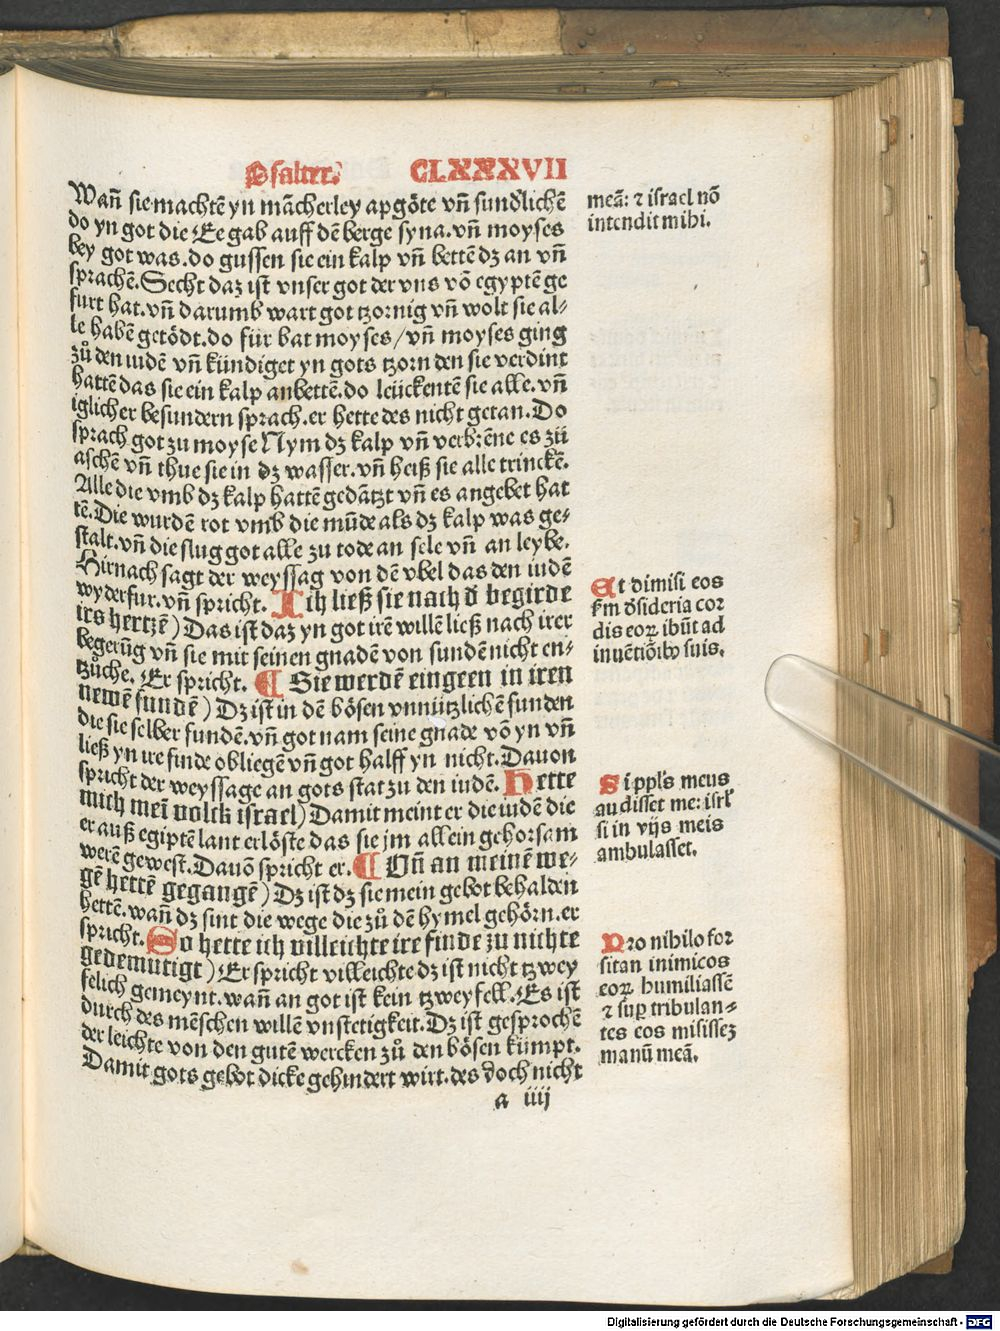 Psalter. CLXXXVII
Wañ sie machtē yn mācherley apgöte vñ sundlichē
do yn got die Ee gab auff dē berge syna. vñ moyses
bey got was. do gussen sie ein kalp vñ bettē dz an vñ
sprachē. Secht daz ist vnser got der vns vō egyptē ge
furt hat. vñ darumb wart got tzornig vñ wolt sie al⸗
le habē getödt. do für bat moyses / vñ moyses ging
zů den iudē vñ kündiget yn gots tzorn den sie verdint
hattē das sie ein kalp anbettē. do leückentē sie alle. vñ
iglicher besundern sprach. er hette des nicht getan. Do
sprach got zu moyse Nym dz kalp vñ verbrēne es zü
aschē vñ thue sie in dz wasser. vñ heiß sie alle trinckē.
Alle die vmb dz kalp hattē gedātzt vñ es angebet hat
tē. Die wurdē rot vmb die mūde als dz kalp was ge⸗
stalt. vñ die slug got alle zu tode an sele vñ an leybe.
Hirnach sagt der weyssag von dē vbel das den iudē
wyderfur. vñ spricht. Ich ließ sie nach d̕ begirde
irs hertzē) Das ist daz yn got irē willē ließ nach irer
begerūg vñ sie mit seinen gnadē von sundē nicht en⸗
tzůche. Er spricht. ¶ Sie werdē eingeen in iren
newē fundē) Dz ist in dē bösen vnnützlichē funden
die sie selber fundē. vñ got nam seine gnade vō yn vñ
ließ yn ire finde obliegē vñ got halff yn nicht. Dauon
spricht der weyssage an gots stat zu den iudē. Hette
mich mei̅ volck israel) Damit meint er die iudē die
er auß egiptē lant erlöste das sie jm allein gehorsam
werē gewest. Dauō spricht er. ¶ Vñ an meinē we⸗
gē hettē gegangē) Dz ist dz sie mein gebot behalden
hettē. wañ dz sint die wege die zů dē hymel gehörn. er
spricht. So hette ich villeichte ire finde zu nichte
gedemutigt) Er spricht villeichte dz ist nicht tzwey
felich gemeynt. wañ an got ist kein tzweyfell. Es ist
durch des mēschen willē vnstetigkeit. Dz ist gesprochē
der leichte von den gutē wercken zů den bösen kümpt.
Damit gots gebot dicke gehindert wirt. des doch nicht
a iiij
meā: ⁊ israel nō
intendit mihi.
Et dimisi eos
fm d̕sideria cor
dis eoꝝ ibūt ad
inuētiōibꝰ suis.
Si ppl̕s meus
audisset me: isrl̕
si in vijs meis
ambulasset.
Pro nihilo for
sitan inimicos
eoꝝ humiliassē
⁊ suꝑ tribulan⸗
tes eos misissez
manū meā.
Digitalisierung gefördert durch die Deutsche Forschungsgemeinschaft - DFG